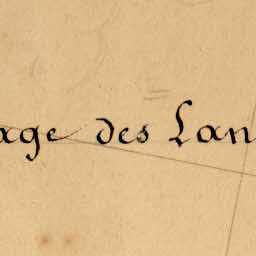 age des Lan